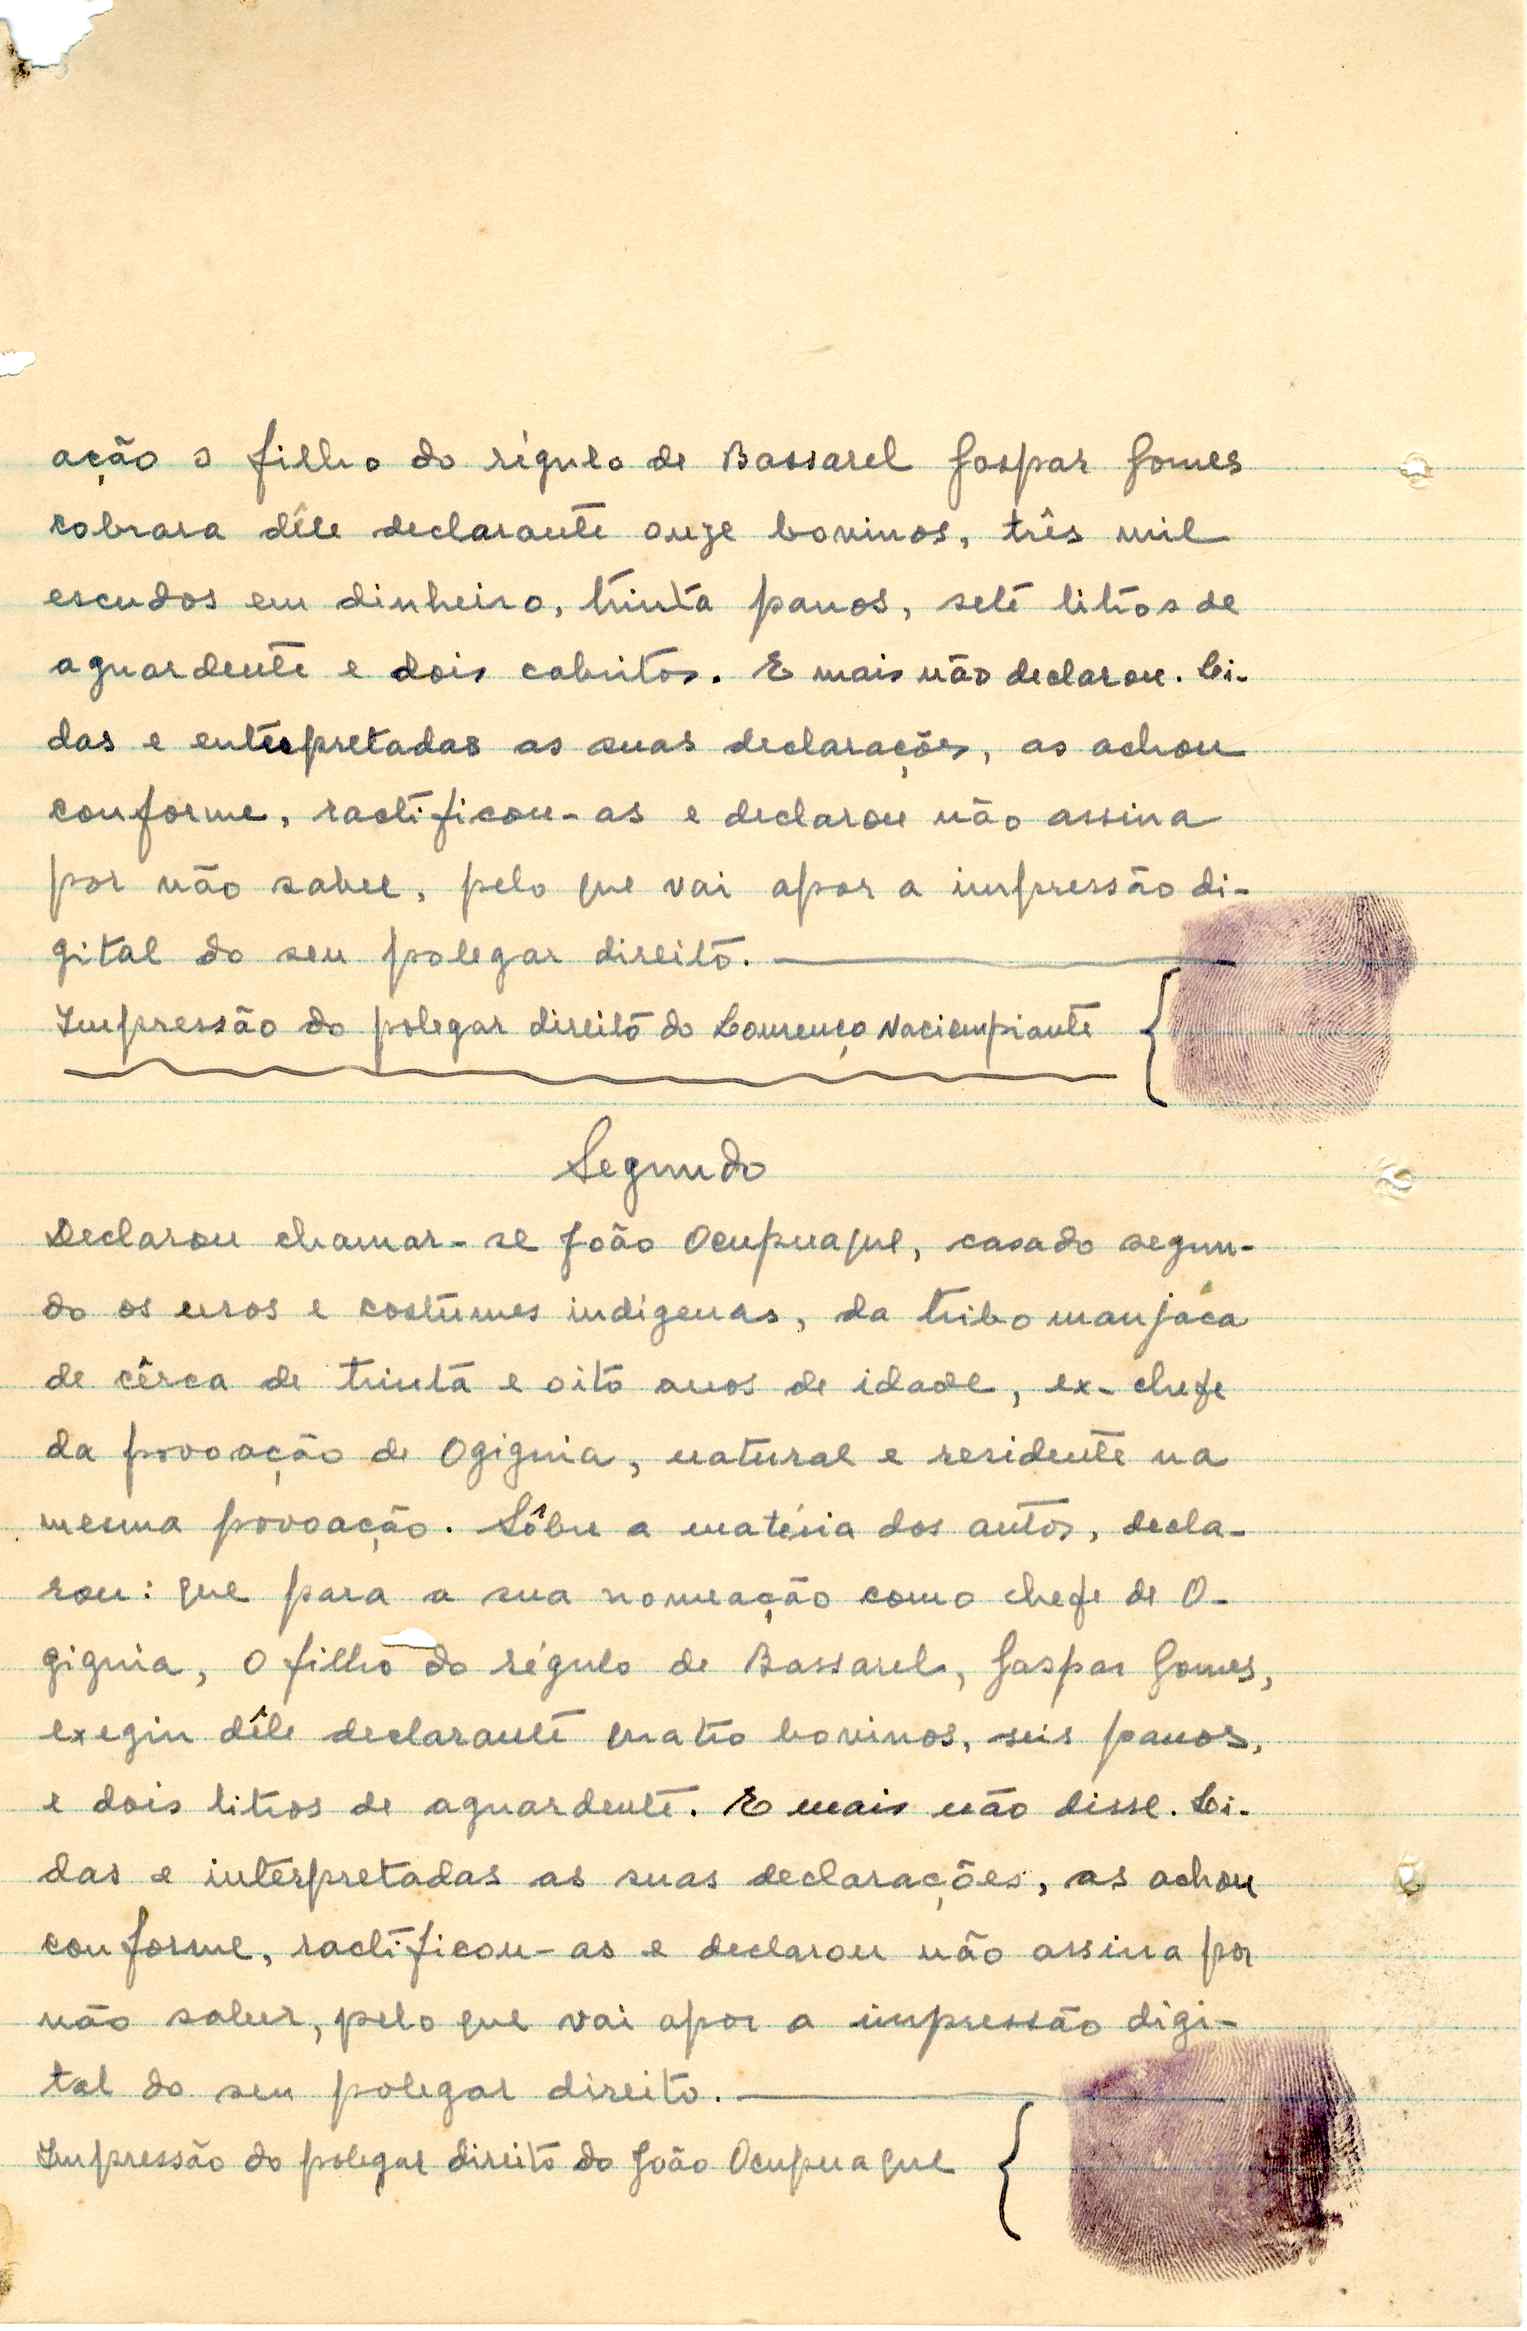 ação o filho do régulo de Bassarel Gaspar Gomes
cobrara dêle declarante onze bovinos, três mil
escudos em dinheiro, trinta panos, sete litros de
aguardente e dois cabritos. E mais não declarou. Li-
das e enterpretadas as suas declarações, as achou
conforme, ractificou-as e declarou não assina
por não saber, pelo que vai apor a impressão di-
gital do seu polegar direito.
Impressão do polegar direito do Lourenço Naciempiante
Segundo
Declarou chamar-se João Ocupuaque, casado segun-
do os usos e costumes indígenas, da tribo manjaca
de cêrca de trinta e oito anos de idade, ex-chefe
da povoação de Ogignia, natural e residente na
mesma povoação. Sôbre a matéria dos autos, decla-
rou: que para a sua nomeação como chefe de O-
gignia, o filho do régulo de Bassarel, Gaspar Gomes,
exegiu dêle declarante quatro bovinos, seis panos,
e dois litros de aguardente. E mais não disse. Li-
das e interpretadas as suas declarações, as achou
conforme, ractificou-as e declarou não assina por
não saber, pelo que vai apor a impressão digi-
tal do seu polegar direito.
Impressão do polegar direito do João Ocupuaque